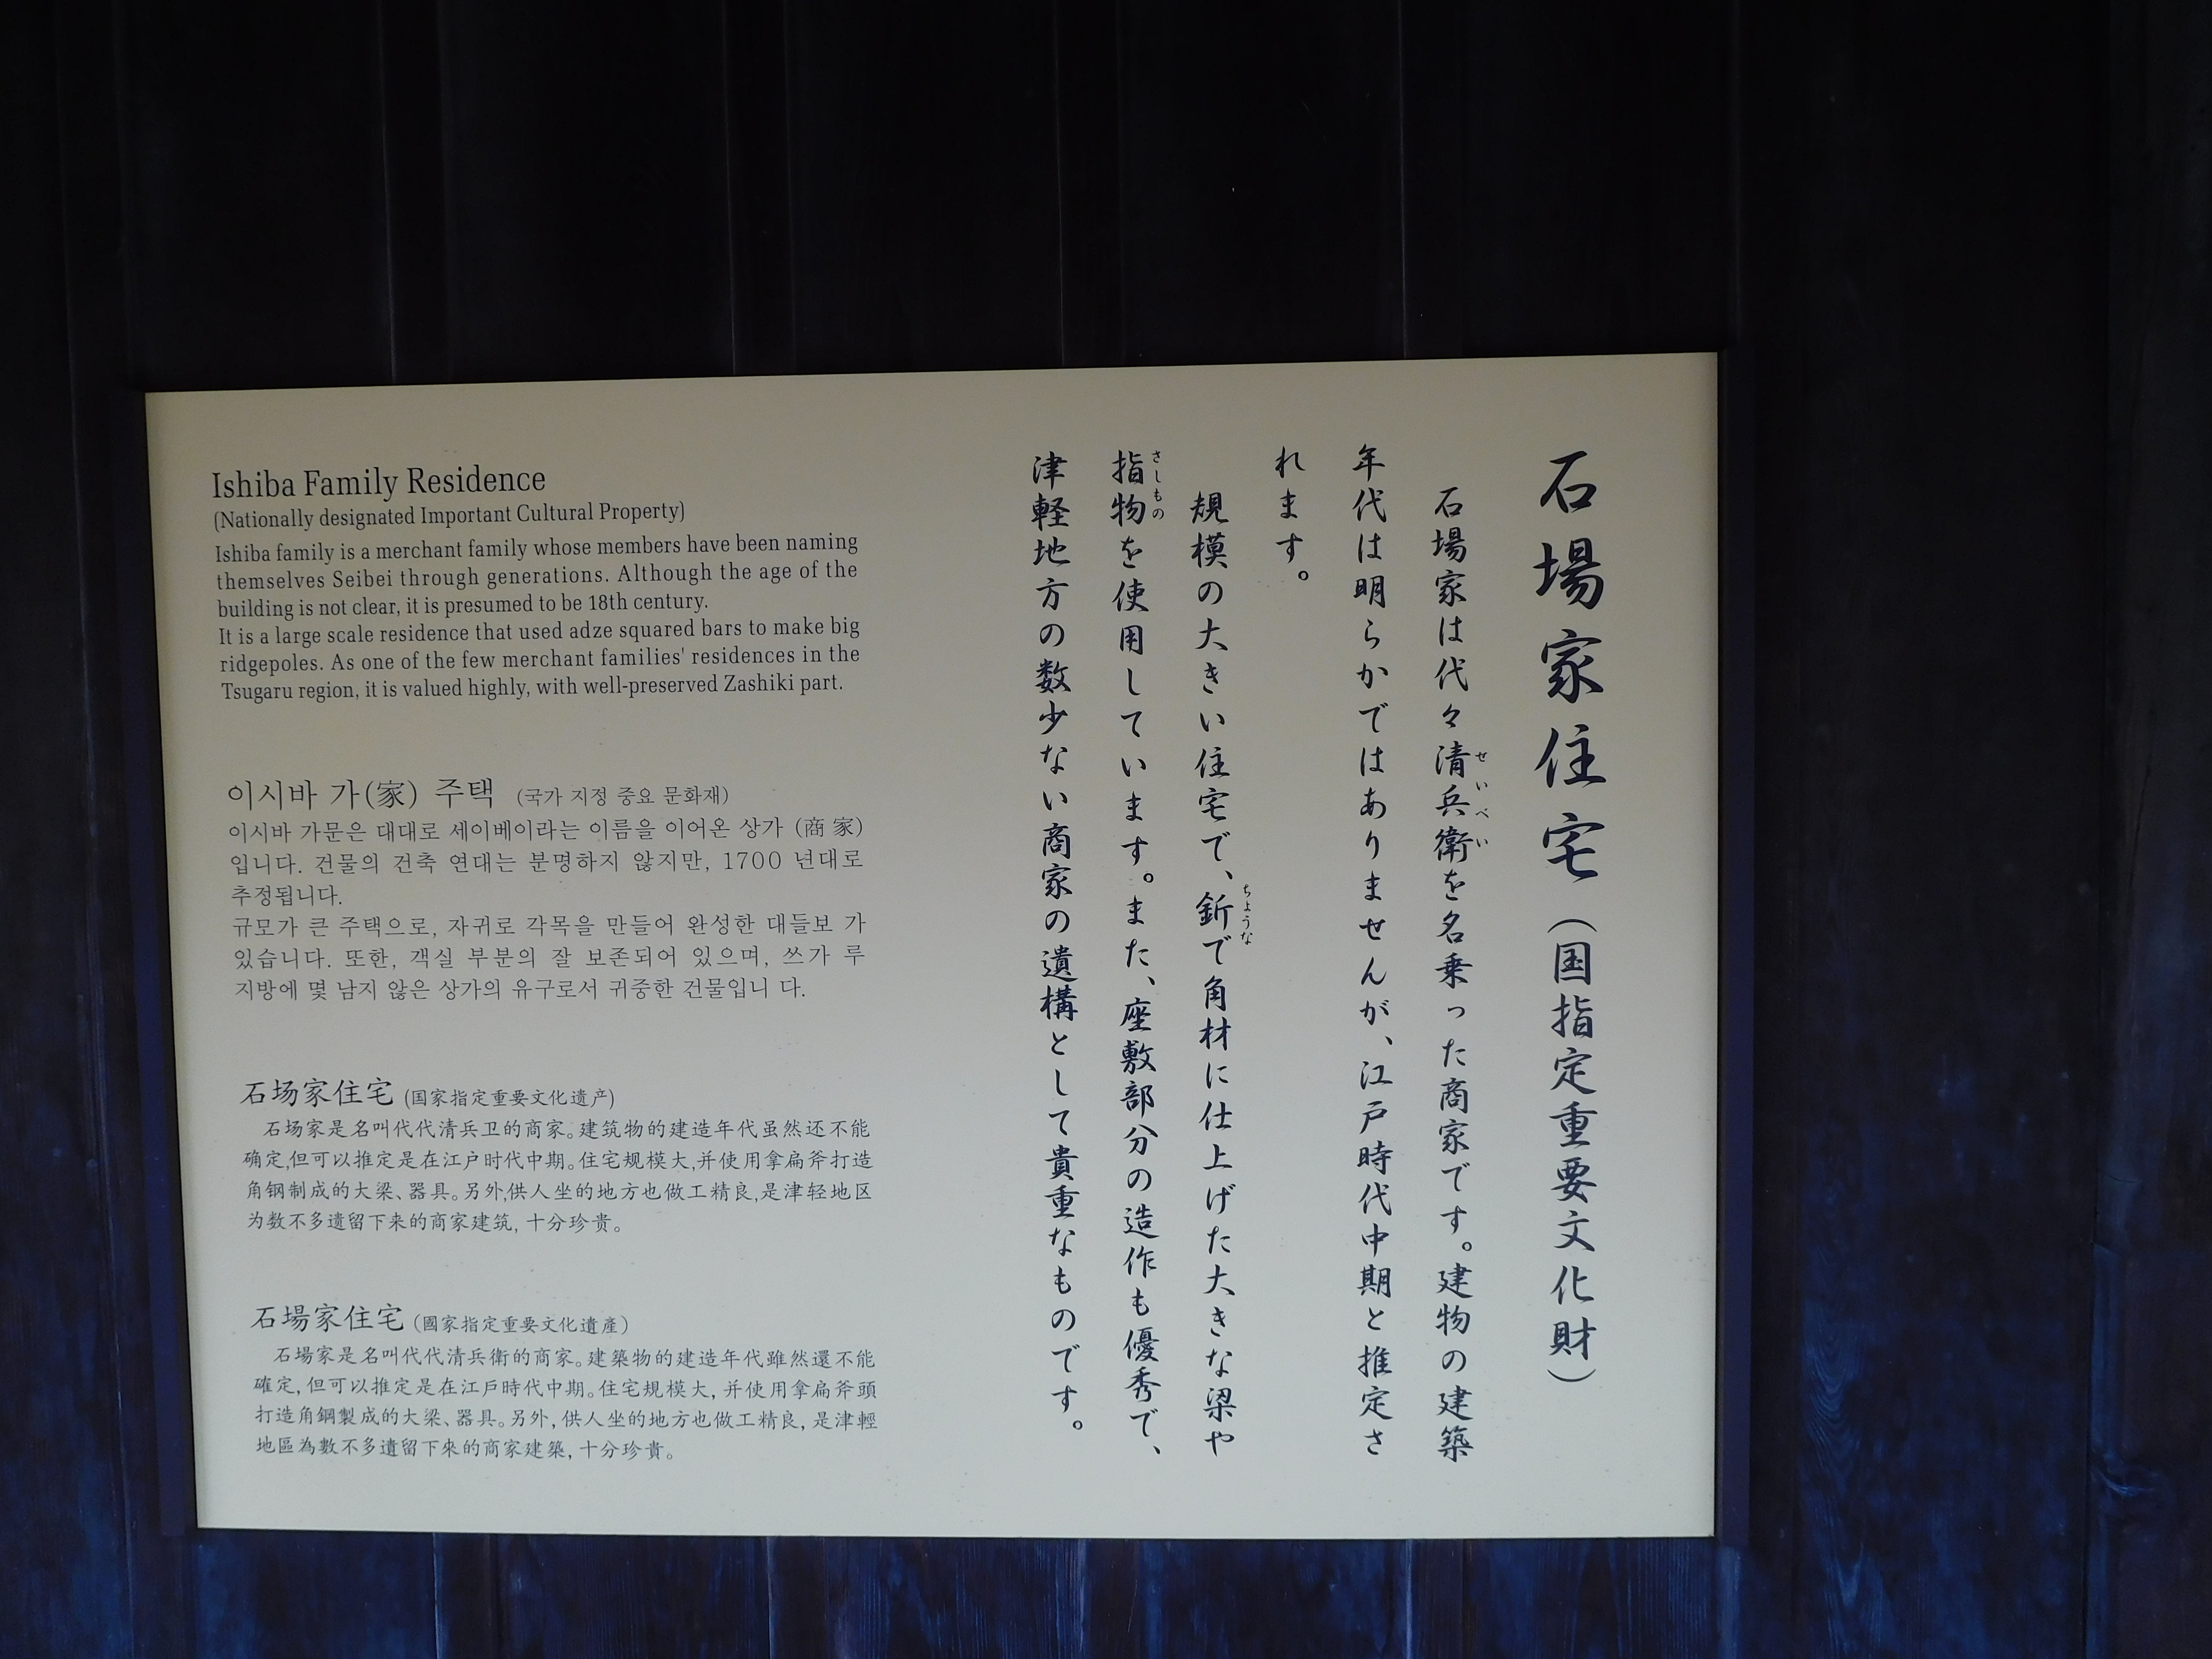 石場家住宅(国指定重要文化財)
石場家は代々清兵衛を名乗った商家です。建物の建築
せいべい
年代は明らかではありませんが、江戸時代中期と推定さ
れます。
規模の大きい住宅で、釿で角材に仕上げた大きな梁や
ちょうな
指物を使用しています。また、座敷部分の造作も優秀で、
さしもの
津軽地方の数少ない商家の遺構として貴重なものです。
Ishiba Family Residence
(Nationally designated Important Cultural Property)
Ishiba family is a merchant family whose members have been naming
themselves Seibei through generations. Although the age of the
building is not clear, it is presumed to be 18th century.
It is a large scale residence that used adze squared bars to make big
ridgepoles. As one of the few merchant families' residences in the
Tsugaru region, it is valued highly, with well-preserved Zashiki part.
이시바 가(家) 주택 (국가 지정 중요 문화재)
이시바 가문은 대대로 세이베이라는 이름을 이어온 상가 (商 家)
입니다. 건물의 건축 연대는 분명하지 않지만, 1700 년대로
추정됩니다.
규모가 큰 주택으로, 자귀로 각목을 만들어 완성한 대들보 가
있습니다. 또한, 객실 부분의 잘 보존되어 있으며, 쓰가 루
지방에 몇 남지 않은 상가의 유구로서 귀중한 건물입니 다.
石场家住宅 (国家指定重要文化遗产)
石场家是名叫代代清兵卫的商家。建筑物的建造年代虽然还不能
确定,但可以推定是在江户时代中期。住宅规模大,并使用拿扁斧打造
角钢制成的大梁、器具。另外,供人坐的地方也做工精良,是津轻地区
为数不多遗留下来的商家建筑, 十分珍贵。
石場家住宅 (國家指定重要文化遺產)
石場家是名叫代代清兵衛的商家。建築物的建造年代雖然還不能
確定, 但可以推定是在江戶時代中期。住宅規模大, 并使用拿扁斧頭
打造角鋼製成的大梁、器具。另外, 供人坐的地方也做工精良, 是津輕
地區為數不多遺留下來的商家建築, 十分珍貴。